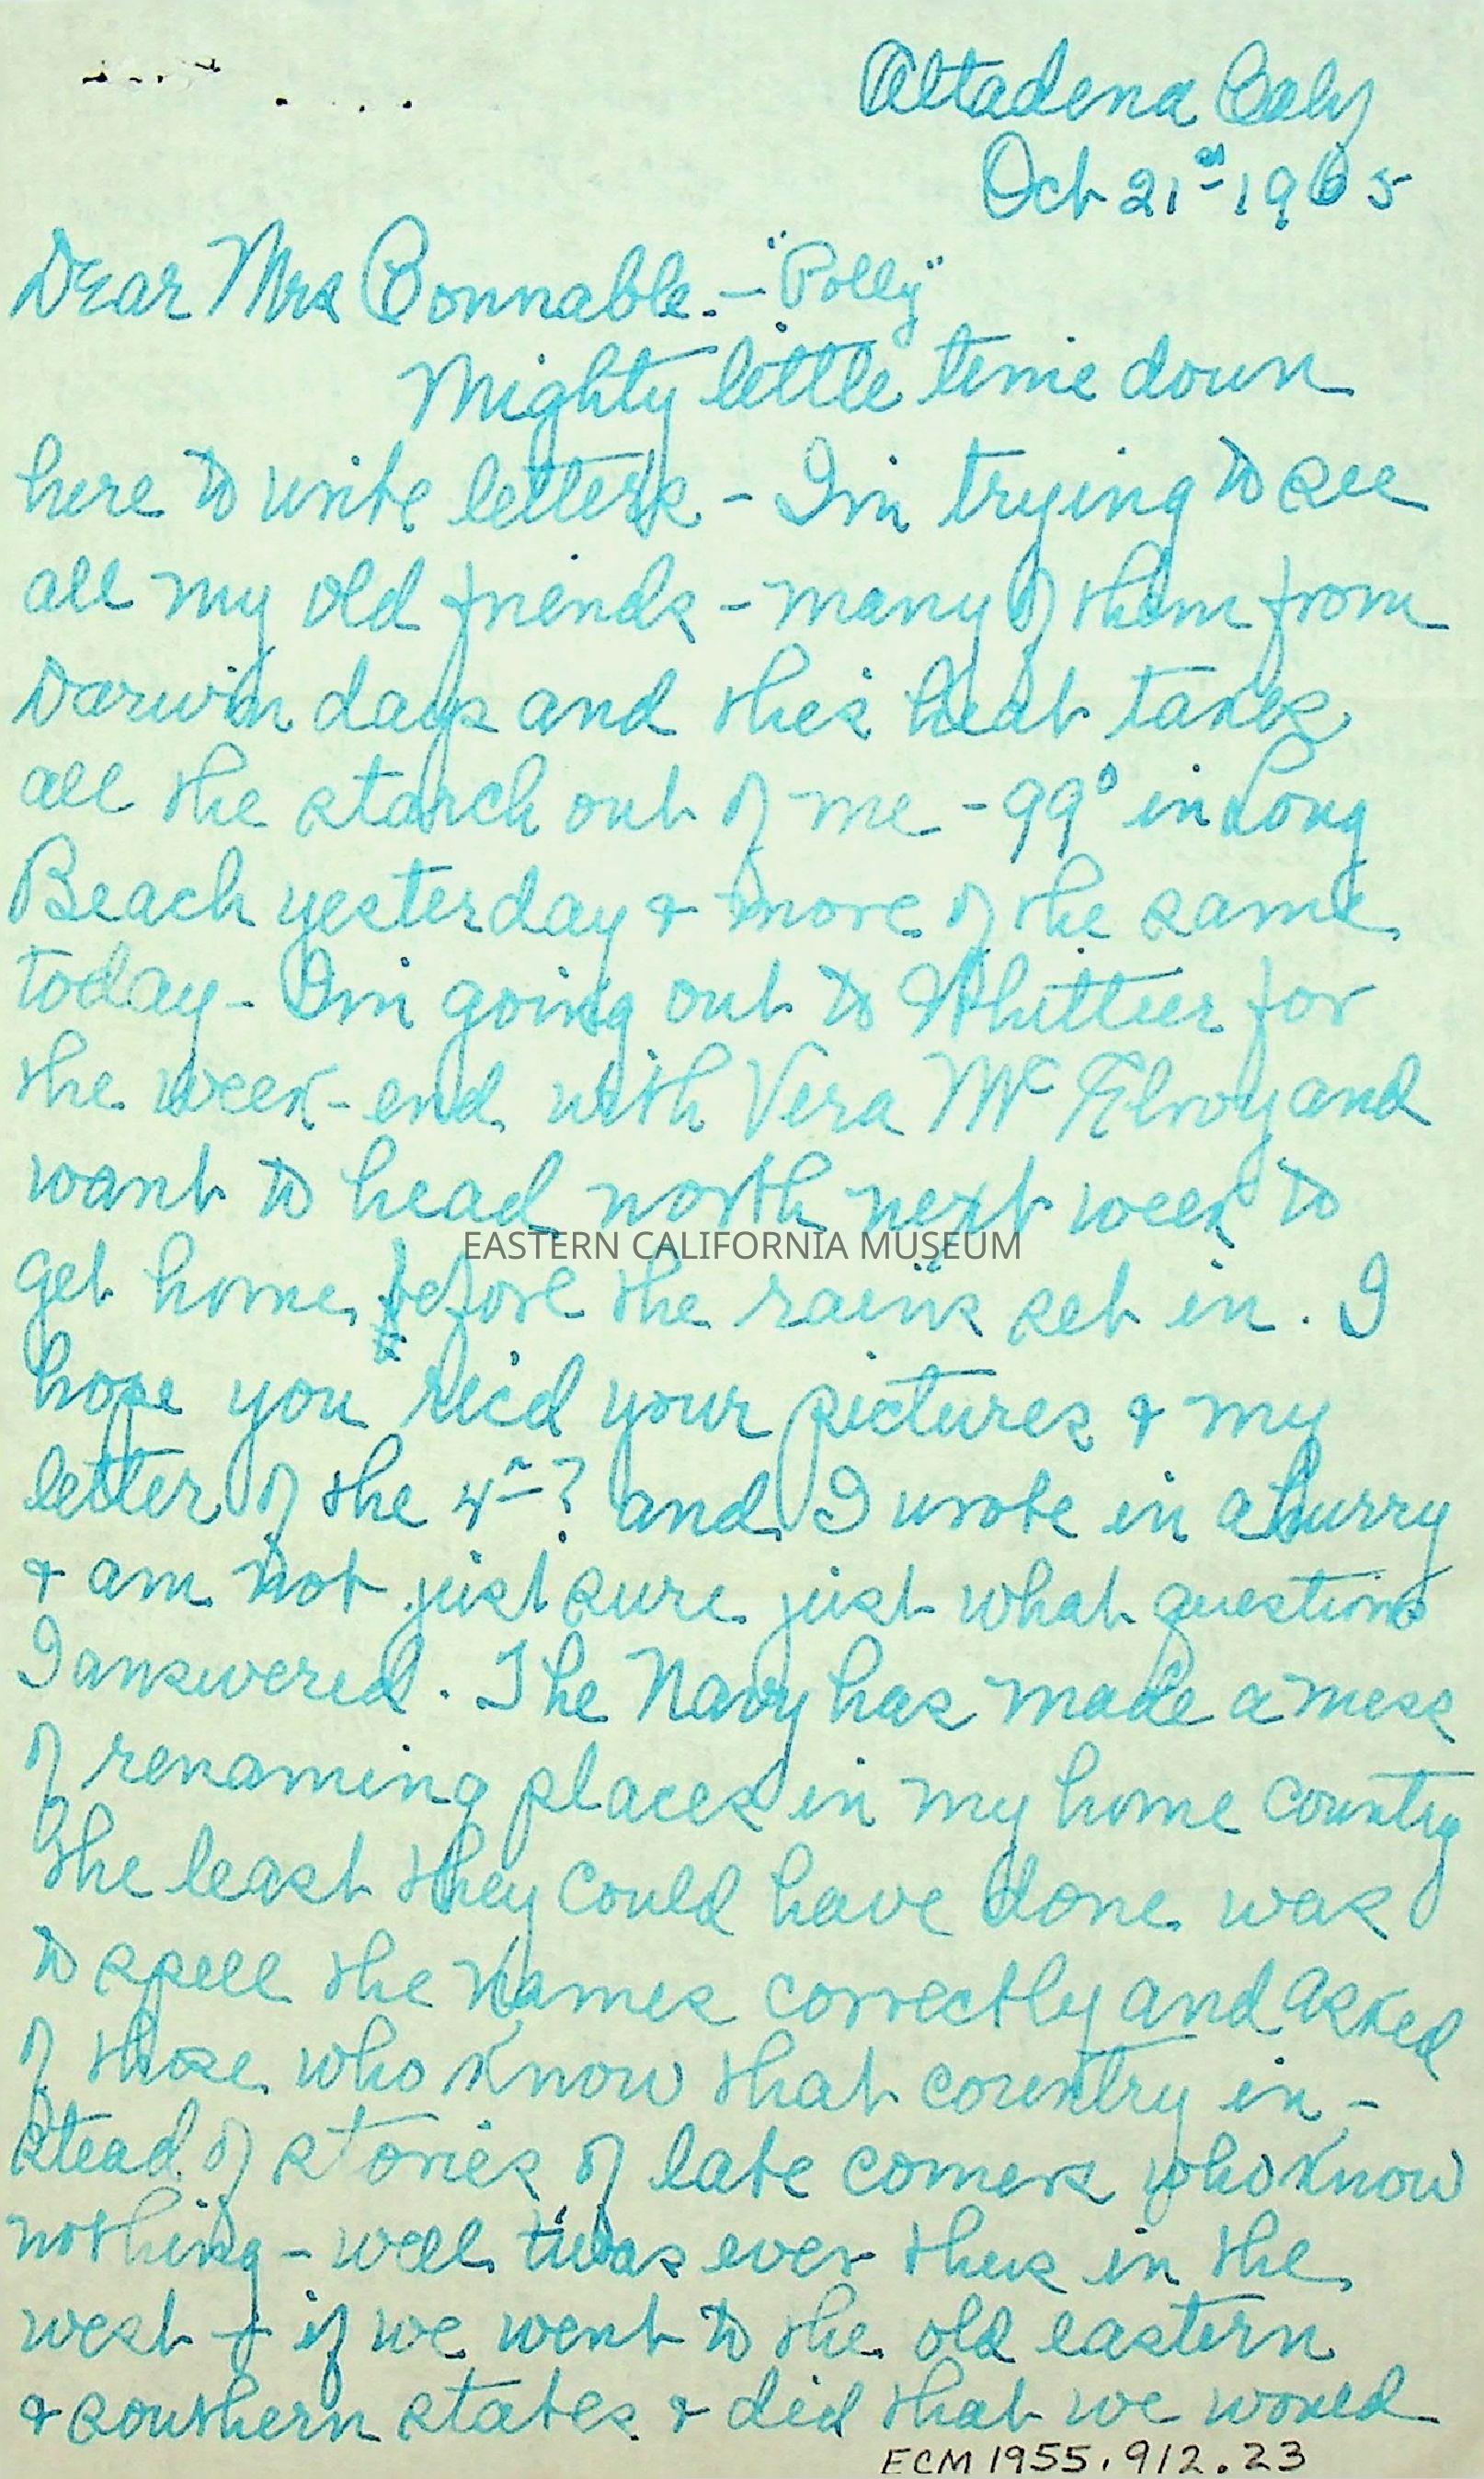 Altadena Caly
Oct 21st 1965
Dear Mrs Bonnable. - "Polly"
Mighty little time down
here to write letters - I'm trying to see
all my old friends - many of them from
Darwin days and this heat takes
all the starch out of me - 99° in Long
Beach yesterday & more of the same
today - I'm going out to Whittier for
the week-end with Vera McElroy and
want to head north next week to
EASTERN CALIFORNIA MUSEUM
get home before the rains set in. I
hope you rec'd your pictures & my
letter of the 4th? and I wrote in a hurry
& am not just sure just what questions
I answered. The Navy has made a mess
of renaming places in my home country
the least they could have done was
to spell the names correctly and asked
of those who know that country in-
stead of stories of late comers who know
nothing - well 'twas ever thus in the
west & if we went to the old eastern
& southern states & did that we would
ECM 1955.912.23